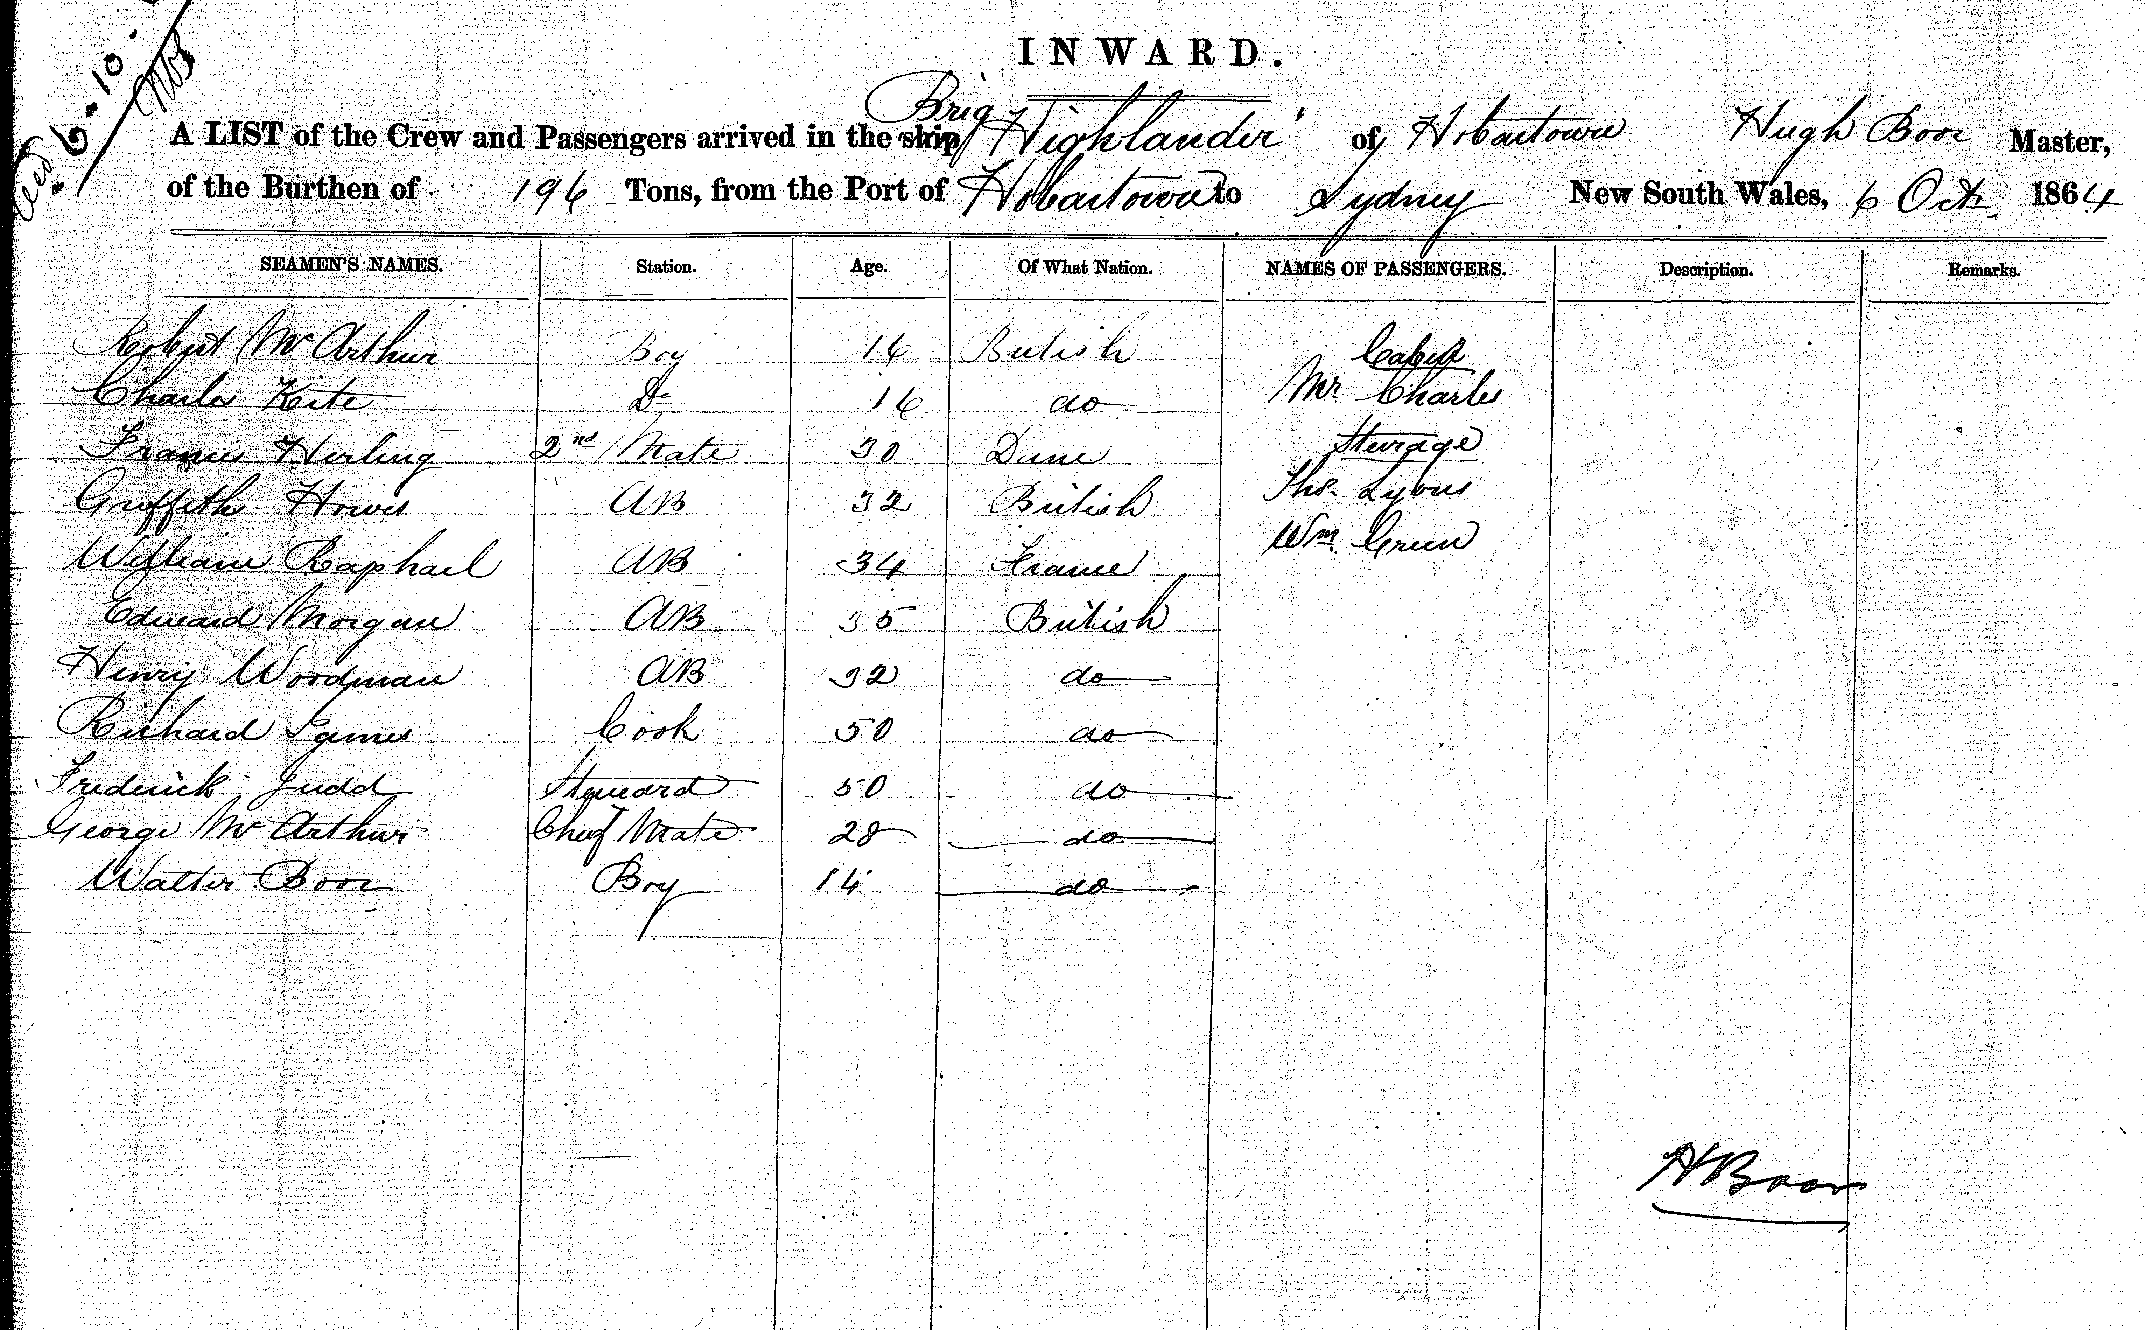 6.10.
INWARD.
Brig
A LIST of the Crew and Passengers arrived in the ship "Highlander" of Hobartown Hugh Boor Master,
of the Burthen of 196 Tons, from the Port of Hobartown to Sydney New South Wales, 6 Oct. 1864
SEAMEN'S NAMES. Station. Age. Of What Nation. NAMES OF PASSENGERS. Description. Remarks.
Robert McArthur Boy 16 British Cabin
Charles Kite Do 16 do Mr Charles
Francis Herling 2nd Mate 30 Dane Sturdge
Griffith Howes AB 32 British Thos. Lyons
William Raphael AB 34 France Wm. Green
Edward Morgan AB 35 British
Henry Woodman AB 32 do
Richard James Cook 50 do
Frederick Judd Steward 50 do
George McArthur Chief Mate 28 do
Walter Boor Boy 14 do
H Boor